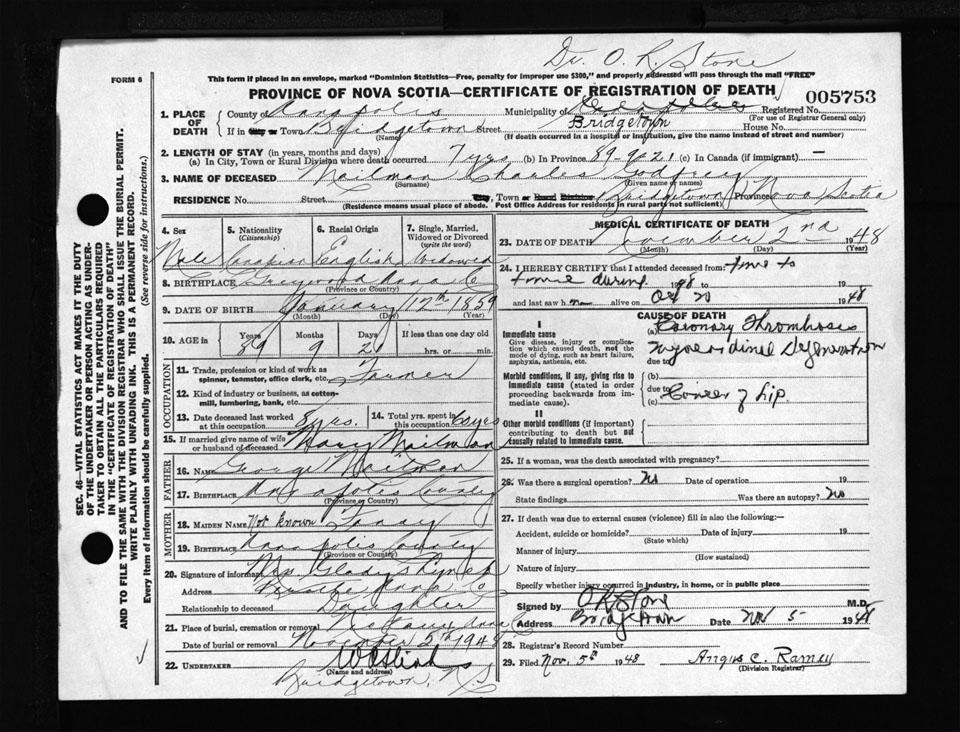 Dr. O. R. Stone
FORM 6
This form if placed in an envelope, marked "Dominion Statistics—Free, penalty for improper use $300," and properly addressed will pass through the mail "FREE"
PROVINCE OF NOVA SCOTIA—CERTIFICATE OF REGISTRATION OF DEATH
005753
1. PLACE OF DEATH
County of Annapolis Municipality of Registered No.
(For use of Registrar General only)
If in City or Town Bridgetown Street Bridgetown House No.
(Name) (If death occurred in a hospital or institution, give the name instead of street and number)
2. LENGTH OF STAY (in years, months and days)
(a) In City, Town or Rural Division where death occurred 7 yrs (b) In Province 89-9-21 (c) In Canada (if immigrant) —
3. NAME OF DECEASED Mailman Charles Godfrey
(Surname) (Given name or names)
RESIDENCE No. Street City, Town or Rural Division Bridgetown Province Nova Scotia
(Residence means usual place of abode. Post Office Address for residents in rural parts not sufficient)
4. Sex
Male
5. Nationality
(Citizenship)
Canadian
6. Racial Origin
English
7. Single, Married, Widowed or Divorced
(write the word)
Widowed
8. BIRTHPLACE Greywood Anna Co
(Province or Country)
9. DATE OF BIRTH January 12th 1859
(Month) (Day) (Year)
10. AGE in Years Months Days If less than one day old
89 9 21 hrs. or min.
OCCUPATION
11. Trade, profession or kind of work as
spinner, teamster, office clerk, etc. Farmer
12. Kind of industry or business, as cotten-
mill, lumbering, bank, etc.
13. Date deceased last worked
at this occupation 8 yrs.
14. Total yrs. spent in
this occupation 60 yrs
15. If married give name of wife
or husband of deceased Mary Mailman
FATHER
16. NAME George Mailman
17. BIRTHPLACE Annapolis County
(Province or Country)
MOTHER
18. MAIDEN NAME Not known Fanny
19. BIRTHPLACE Annapolis County
(Province or Country)
20. Signature of informant Mrs Gladys
Address
Relationship to deceased Daughter
21. Place of burial, cremation or removal
Date of burial or removal November 5th 1948
22. UNDERTAKER
(Name and address)
Bridgetown, N.S
MEDICAL CERTIFICATE OF DEATH
23. DATE OF DEATH November 2nd 1948
(Month) (Day) (Year)
24. I HEREBY CERTIFY that I attended deceased from: time to
time during 1948 to 19
and last saw him alive on Oct 20 1948
CAUSE OF DEATH
I
Immediate cause
Give disease, injury or complication which caused death, not the mode of dying, such as heart failure, asphyxia, asthenia, etc.
(a) Coronary Thrombosis
due to
Morbid conditions, if any, giving rise to immediate cause (stated in order proceeding backwards from immediate cause).
(b)
due to
(c) Cancer of Lip.
II
Other morbid conditions (if important) contributing to death but not causally related to immediate cause.
25. If a woman, was the death associated with pregnancy?
26. Was there a surgical operation? No Date of operation 19
State findings Was there an autopsy? No
27. If death was due to external causes (violence) fill in also the following:—
Accident, suicide or homicide? Date of injury 19
(State which)
Manner of injury
(How sustained)
Nature of injury
Specify whether injury occurred in industry, in home, or in public place
Signed by O R Stone M.D.
Address Bridgetown Date Nov 5 1948
28. Registrar's Record Number
29. Filed Nov. 5th 1948 Angus C. Ramey
(Division Registrar)
SEC. 46—VITAL STATISTICS ACT MAKES IT THE DUTY
OF THE UNDERTAKER OR PERSON ACTING AS UNDER-
TAKER TO OBTAIN ALL THE PARTICULARS REQUIRED
IN THE "CERTIFICATE OF REGISTRATION OF DEATH"
AND TO FILE THE SAME WITH THE DIVISION REGISTRAR WHO SHALL ISSUE THE BURIAL PERMIT.
WRITE PLAINLY WITH UNFADING INK. THIS IS A PERMANENT RECORD.
Every item of information should be carefully supplied. (See reverse side for instructions.)